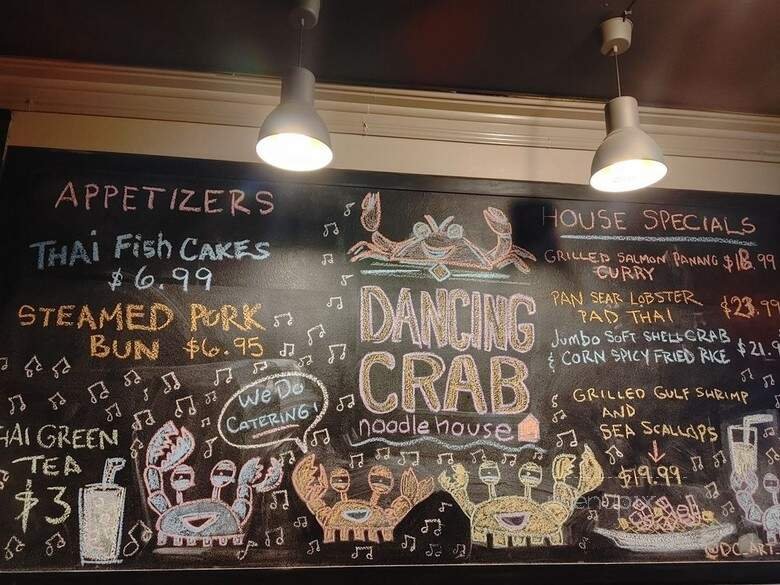 APPETIZERS
THAi Fish CAKES
$6.99
STEAMED PORK
BUN $6.95
We Do
CATERING!
HAI GREEN
TEA
$3
DANCING
CRAB
noodle house
HOUSE SPECIALS
GRILLED SALMON PANANG $18.99
CURRY
PAN SEAR LOBSTER
PAD THAI $23.9
Jumbo SOFT SHELL CRAB
& CORN SPICY FRIED RICE $21.9
GRILLED GULF SHRIMP
AND
SEA SCALLOPS
$19.99
@DC_ART